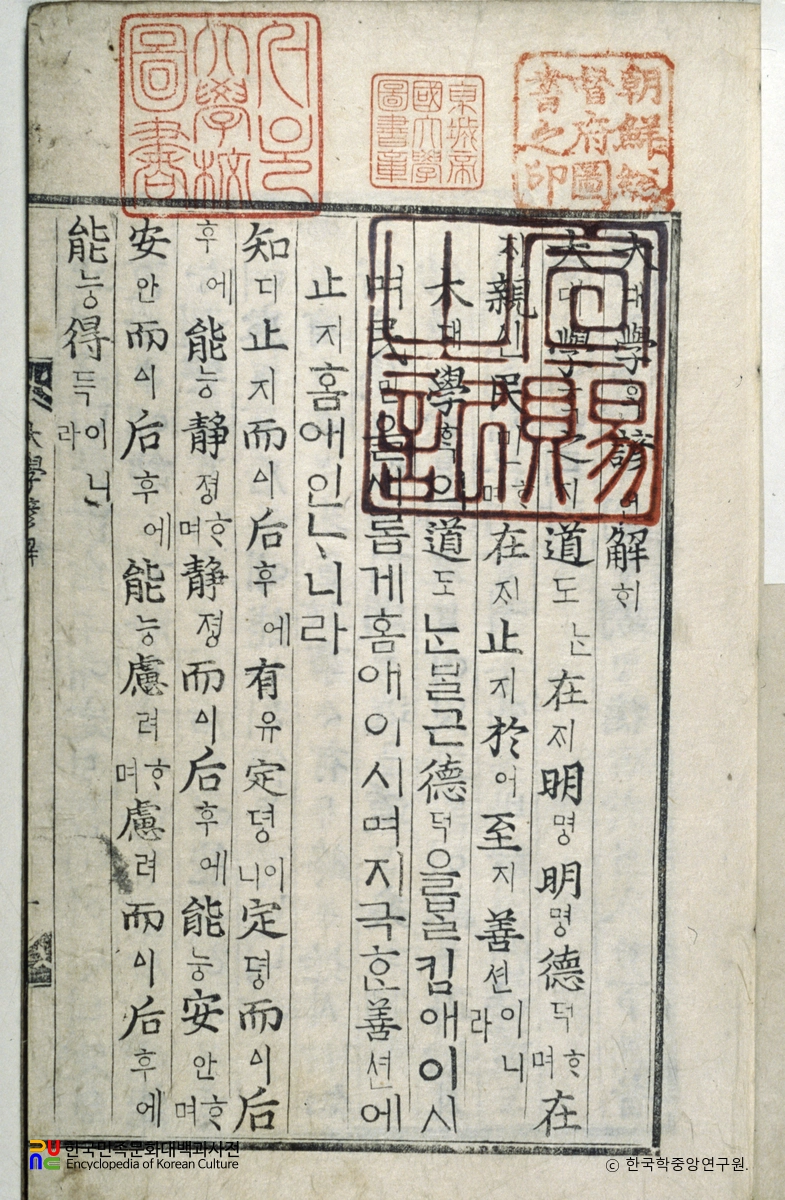 朝鮮總督府圖書之印
京城帝國大學圖書章
서울大學校圖書
宣賜之記
大대學ᄒᆞᆨ諺언解ᄒᆡ
大대學ᄒᆞᆨ之지道도ᄂᆞᆫ在ᄌᆡ明명明명德덕ᄒᆞ며在
ᄌᆡ親신民민ᄒᆞ며在ᄌᆡ止지於어至지善션이니라
大대學ᄒᆞᆨ의道도ᄂᆞᆫᄇᆞᆯᄀᆞᆫ德덕을ᄇᆞᆯ킴애이시
며民민을새롭게홈애이시며지극ᄒᆞᆫ善션에
止지홈애인ᄂᆞ니라
知디止지而이后후에有유定뎡이니定뎡而이后
후에能능静졍ᄒᆞ며静졍而이后후에能능安안ᄒᆞ며
安안而이后후에能능慮려ᄒᆞ며慮려而이后후에
能능得득이니라
大學諺解
한국민족문화대백과사전
Encyclopedia of Korean Culture
© 한국학중앙연구원.